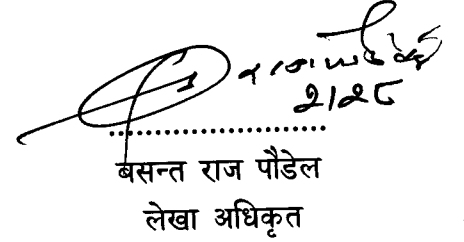 २।२८
बसन्त राज पौडेल
लेखा अधिकृत